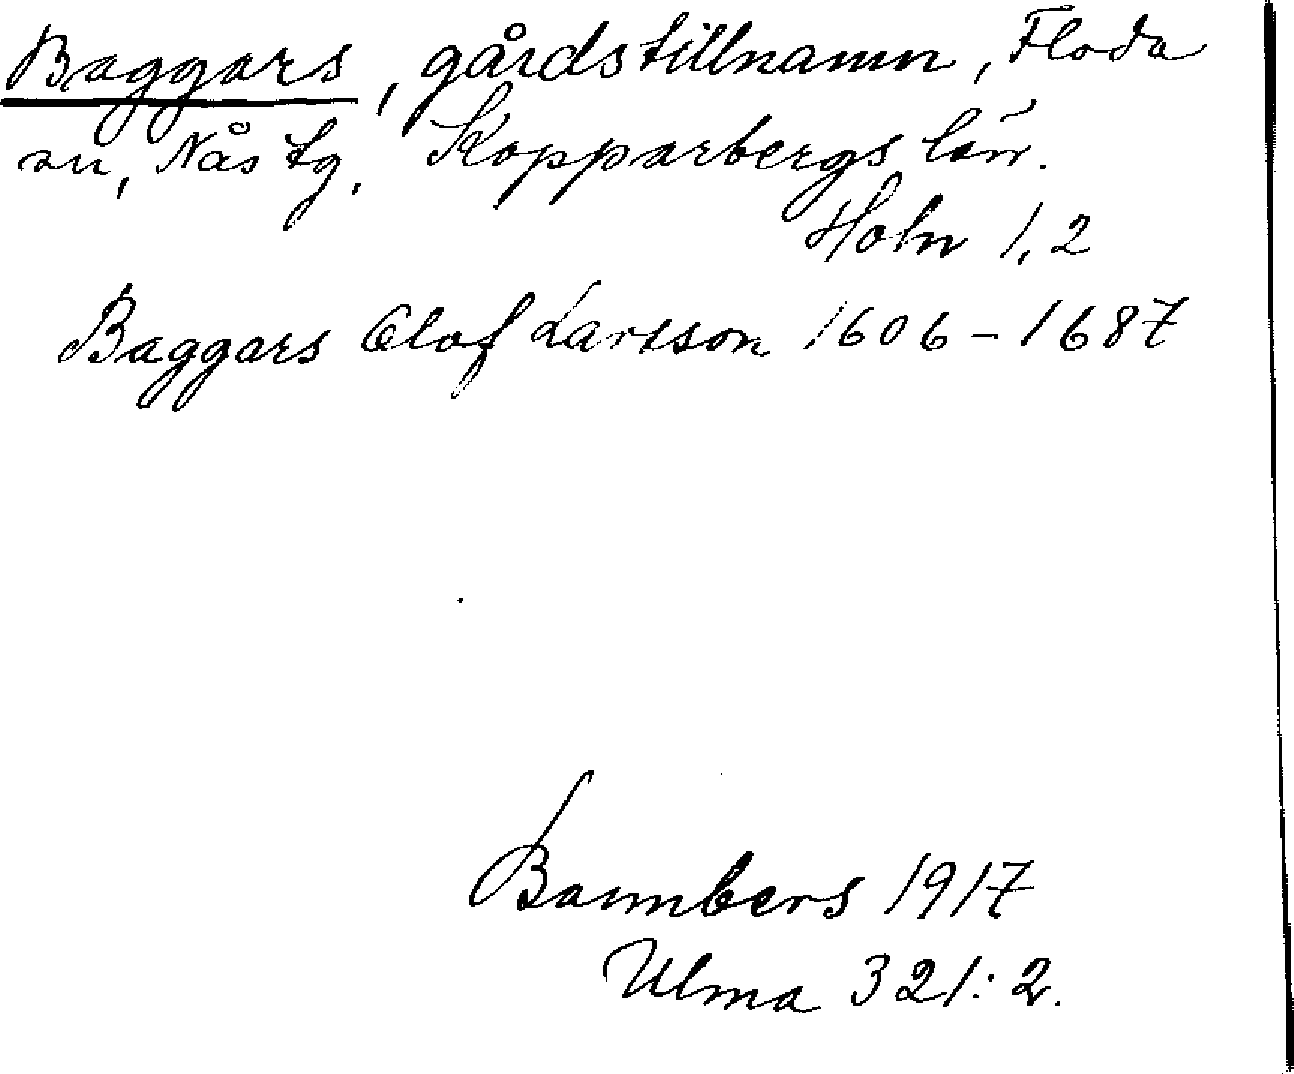 Baggars, gårdstillnamn, Floda
sn, Nås tg, Kopparbergs län.
Holn 1,2
Baggars Olof Larsson 1606-1687
Bannbers 1917
Ulma 321:2.